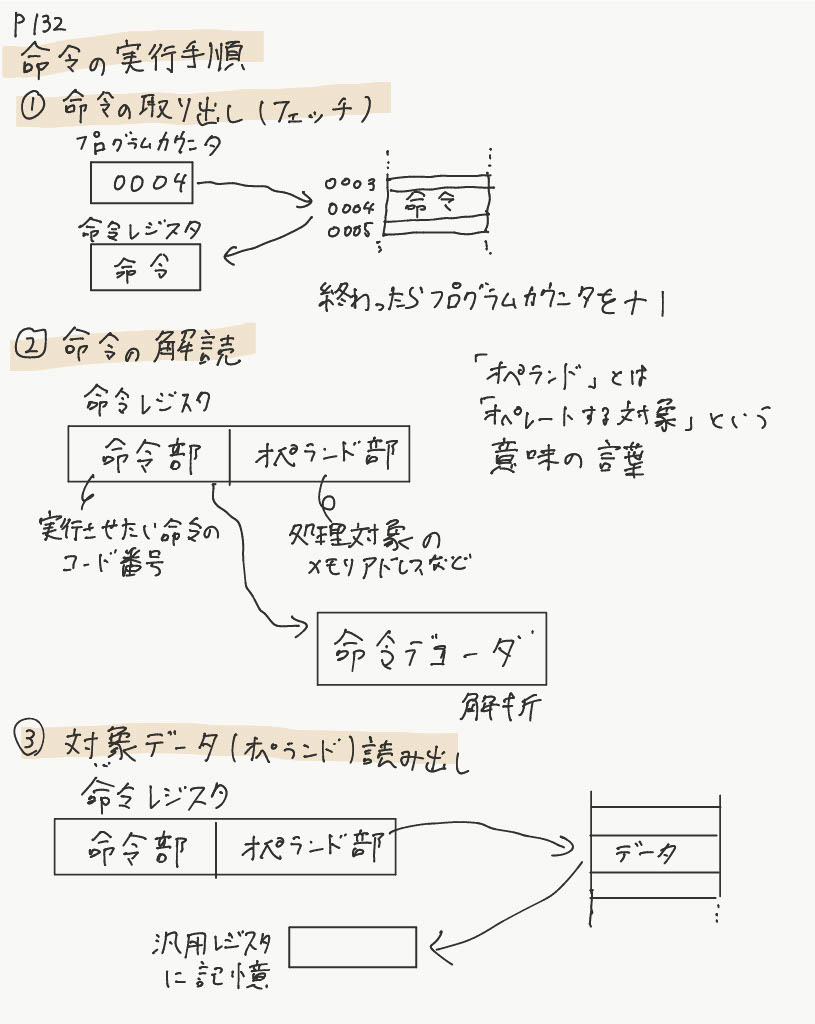 P132
命令の実行手順
① 命令の取り出し(フェッチ)
プログラムカウンタ
0004
0003
0004 命令
0005
命令レジスタ
命令
終わったらプログラムカウンタを+1
② 命令の解読
命令レジスタ
命令部 オペランド部
「オペランド」とは
「オペレートする対象」という
意味の言葉
実行させたい命令の
コード番号
処理対象の
メモリアドレスなど
命令デコーダ
解析
③ 対象データ(オペランド)読み出し
命令レジスタ
命令部 オペランド部
データ
汎用レジスタ
に記憶